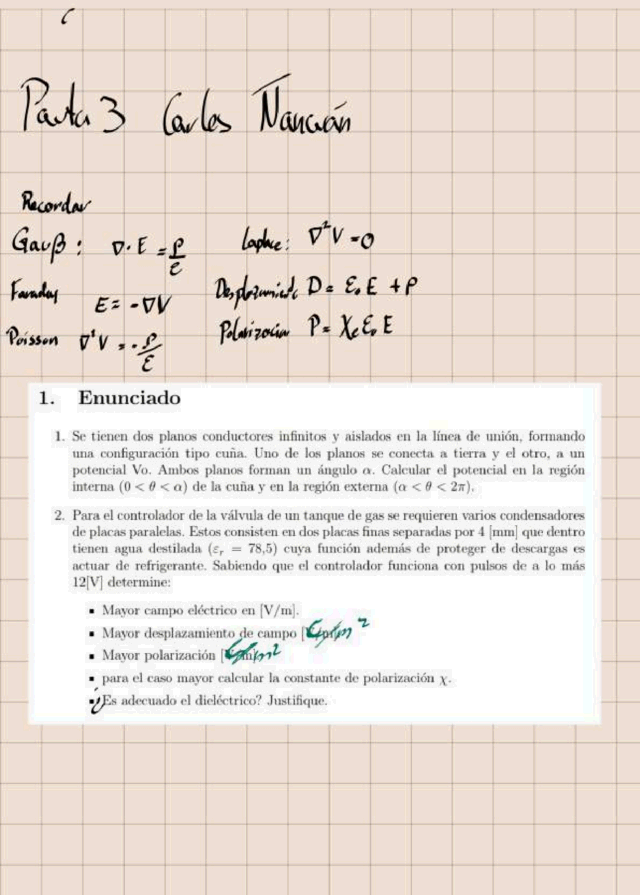 Pauta 3 Carlos Ñancuán
Recordar
Gauβ: ∇·E = ρ/ε
Laplace: ∇²V = 0
Faraday E = -∇V
Desplazamiento D = ε₀E + P
Poisson ∇²V = -ρ/ε
Polarización P = χₑε₀E
1. Enunciado
1. Se tienen dos planos conductores infinitos y aislados en la línea de unión, formando
una configuración tipo cuña. Uno de los planos se conecta a tierra y el otro, a un
potencial Vo. Ambos planos forman un ángulo α. Calcular el potencial en la región
interna (0 < θ < α) de la cuña y en la región externa (α < θ < 2π).
2. Para el controlador de la válvula de un tanque de gas se requieren varios condensadores
de placas paralelas. Estos consisten en dos placas finas separadas por 4 [mm] que dentro
tienen agua destilada (εᵣ = 78,5) cuya función además de proteger de descargas es
actuar de refrigerante. Sabiendo que el controlador funciona con pulsos de a lo más
12[V] determine:
▪ Mayor campo eléctrico en [V/m].
▪ Mayor desplazamiento de campo [C/m²
▪ Mayor polarización [C/m²
▪ para el caso mayor calcular la constante de polarización χ.
▪ ¿Es adecuado el dieléctrico? Justifique.